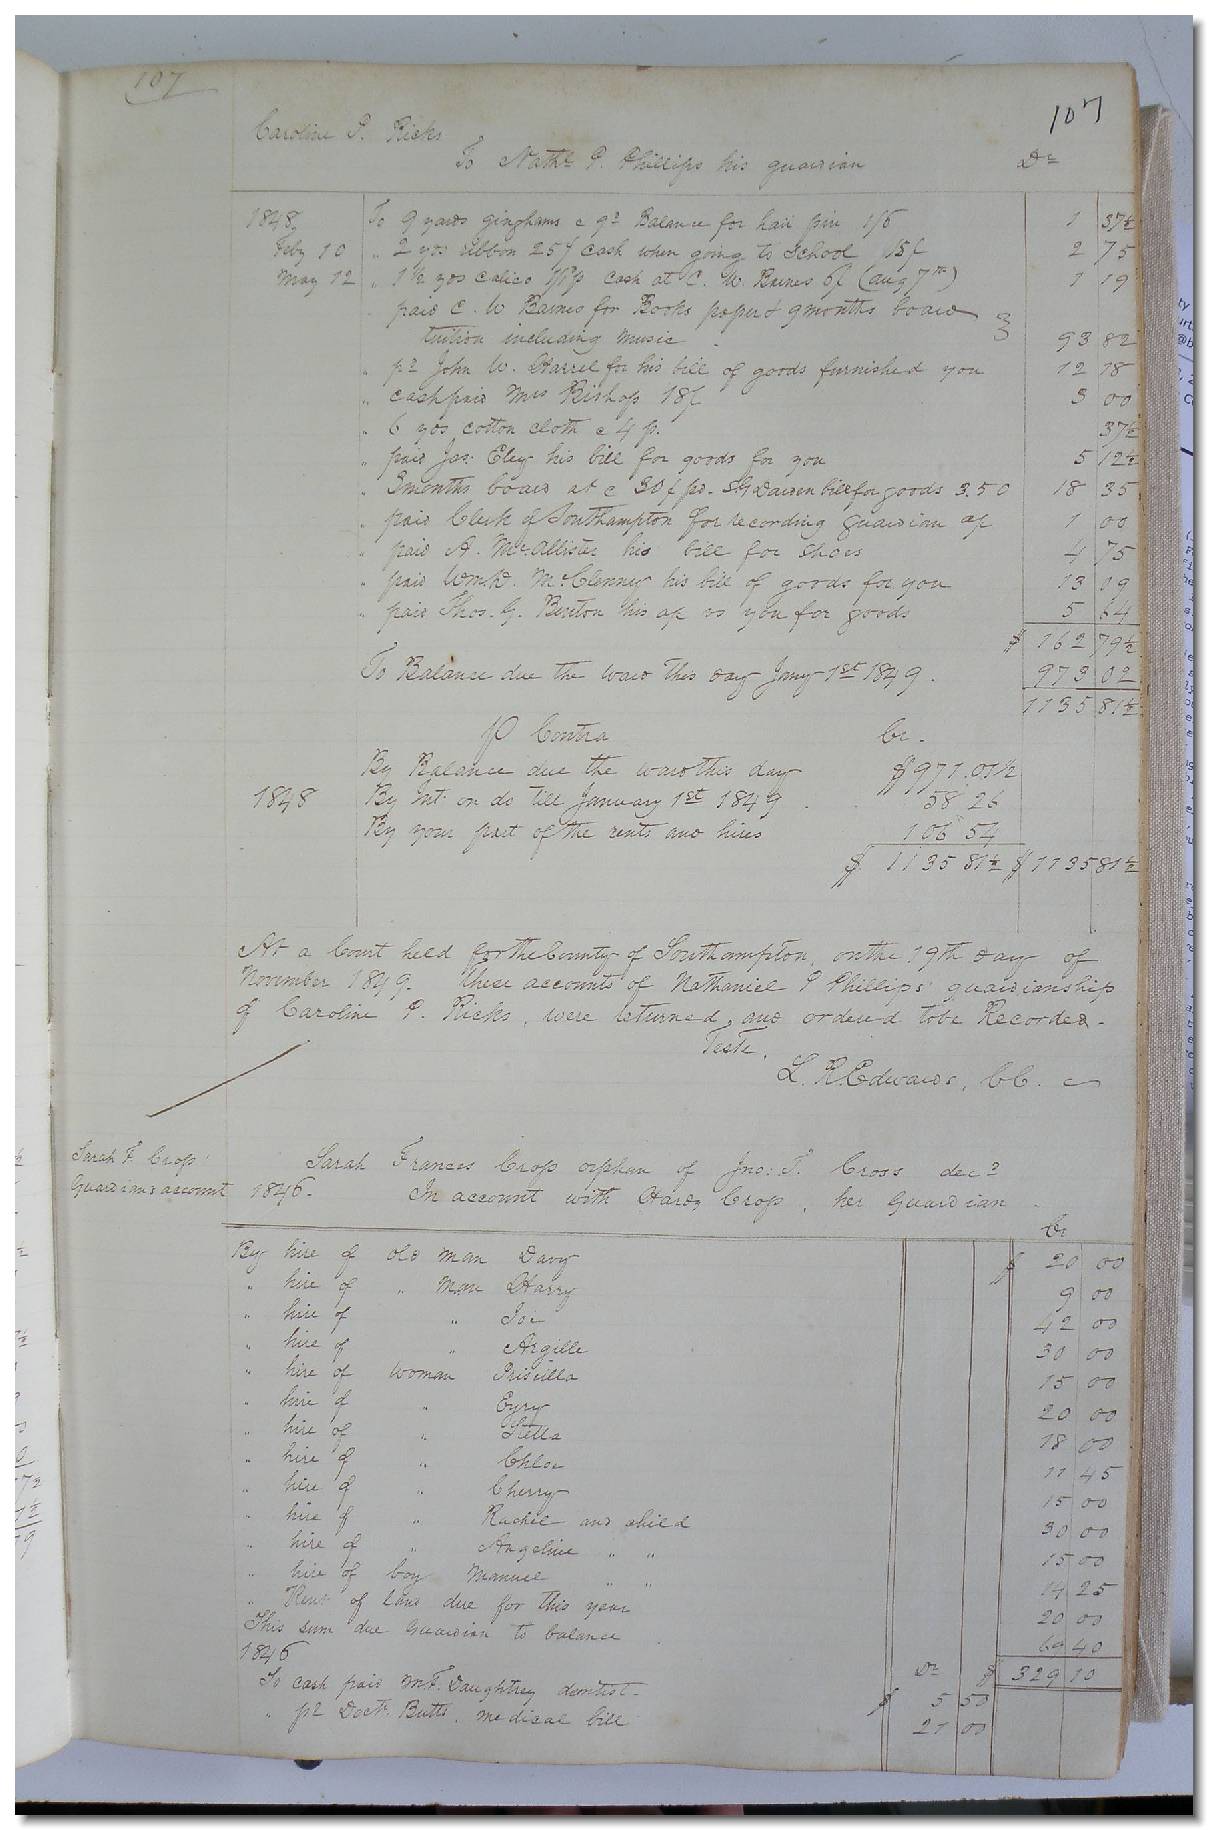 107
107
Caroline P. Ricks
To Nathl. P. Phillips his guardian Dr
1848 To 9 yards ginghams c 9d Balance for hair pin 1/6 1 37½
Feby 10 " 2 yds ribbon 25 f cash when going to School 15/ 2 75
May 12 " 1½ yds calico cash at C. W. Barnes 6/ (Aug 7th) 1 19
paid C. W Barnes for Books paper & 9 months board
tuition including music 93 82
" pd John W. Harrel for his bill of goods furnished you 12 18
" cash paid Mrs Bishop 18/ 3 00
" 6 yds cotton cloth c 4 p. 37½
" paid Jas. Eley his bill for goods for you 5 12½
" 3 months board at c 30/ pd. Darden bill for goods 3.50 18 35
" paid Clerk of Southampton for recording guardian ap 1 00
" paid A. McAllister his bill for shoes 4 75
" paid Wm. D. McClenney his bill of goods for you 13 09
" paid Thos. G. Burton his ap vs you for goods 5 64
$ 162 79½
To Balance due the ward this day Jany 1st 1849. 973 02
1135 81½
P Contra Cr.
By Balance due the ward this day $971.01½
1848 By Int. on do till January 1st 1849. 58 26
By your part of the rents and hires 106 54
$ 1135 81½ $ 1135 81½
At a Court held for the County of Southampton, on the 19th day of
November 1849. These accounts of Nathaniel P Phillips' guardianship
of Caroline P. Ricks, were returned, and ordered to be Recorded.
Teste.
L. R. Edwards, CC.
Sarah F. Crop
Guardians account
Sarah Frances Crop orphan of Jno: T. Cross decd
1846. In account with Hardy Crop, her Guardian.
Cr
By hire of old man Davy $ 20 00
" hire of " Man Harry 9 00
" hire of " Joe 42 00
" hire of " Argille 30 00
" hire of woman Priscilla 15 00
" hire of " Eyry 20 00
" hire of " 18 00
" hire of " Chloe 11 45
" hire of " Cherry 15 00
" hire of " Rachel and child 30 00
" hire of " Angeline " " 15 00
" hire of boy Manuel " " 14 25
" Rent of land due for this year 20 00
This sum due Guardian to balance 69 40
1846 Dr $ 329 10
To cash paid M. F. Daughtrey dentist. $ 5 50
" pd Doct. Butts. medical bill 21 00